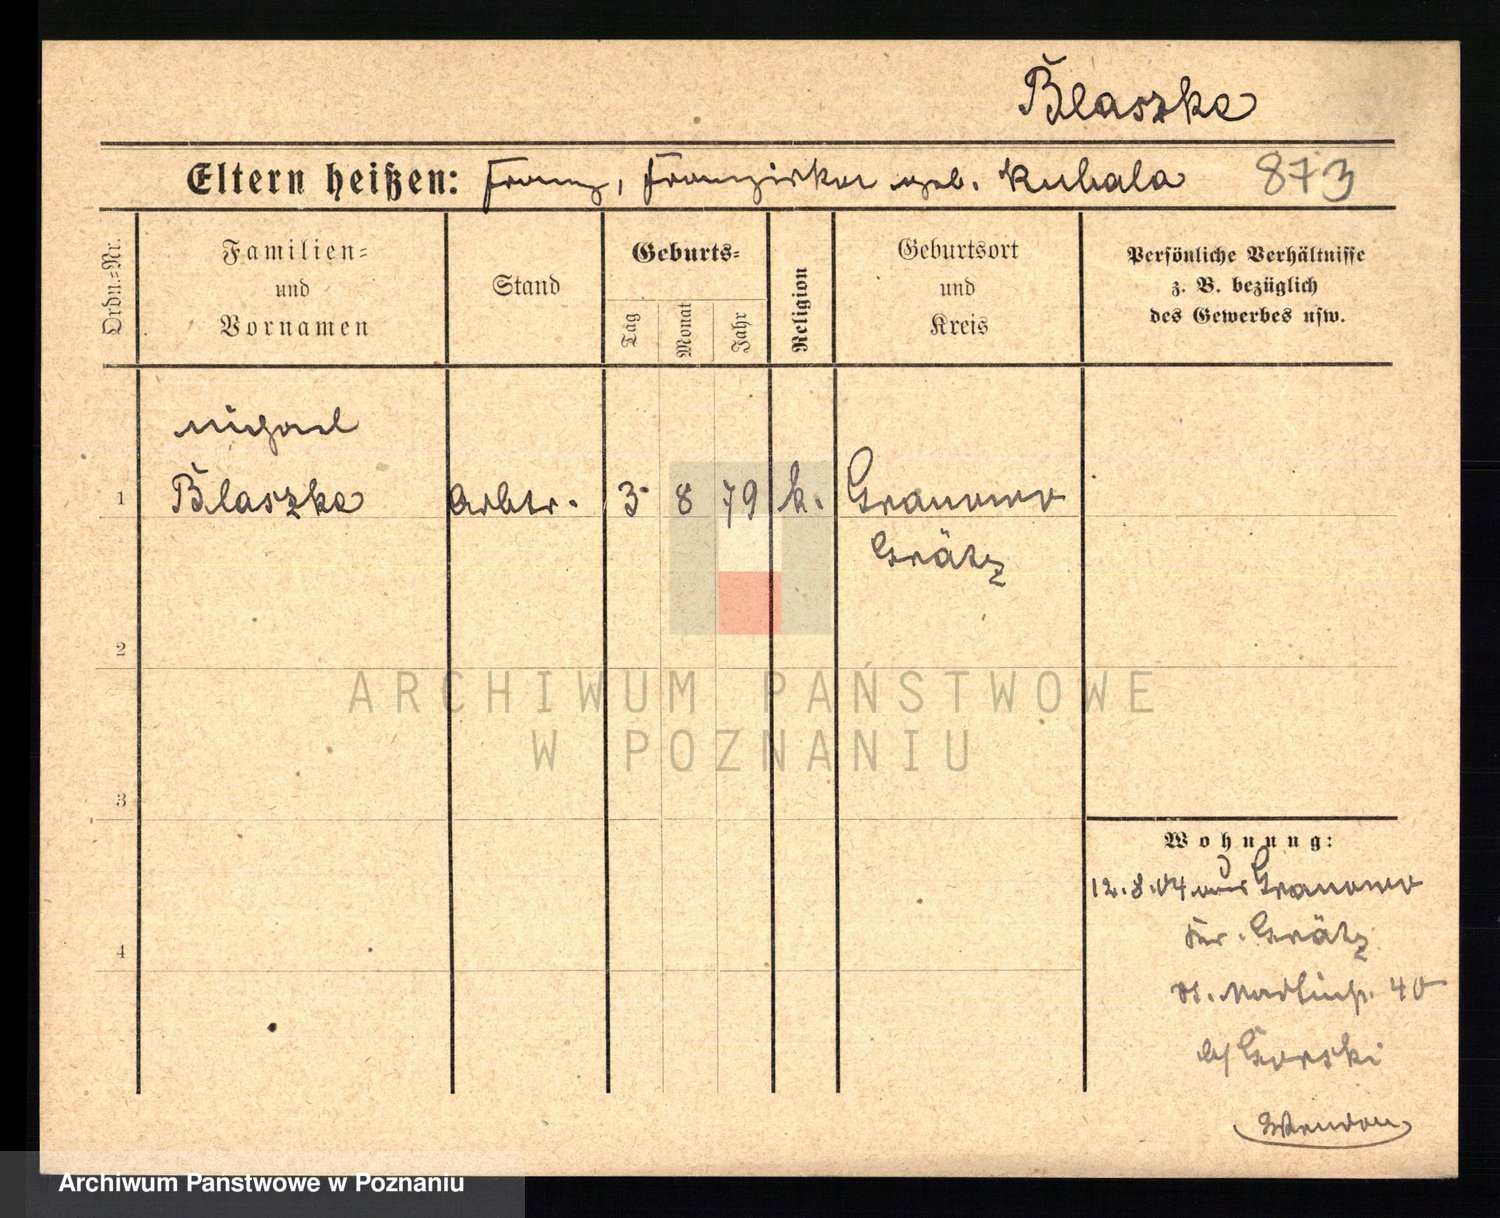 Blaszke
Eltern heißen: Franz, Franziska geb. Kubala 873
Ordn.=Nr.
Familien=
und
Vornamen
Stand
Geburts=
Tag
Monat
Jahr
Religion
Geburtsort
und
Kreis
Persönliche Verhältnisse
z. B. bezüglich
des Gewerbes usw.
Michael
1 Blaszke Arbtr. 3 8 79 k. Granowo
Grätz
2
3
4
Wohnung:
12.8.04 aus Granowo
Kr. Grätz
St. Martinstr. 40
b/ Gorski
ARCHIWUM PAŃSTWOWE
W POZNANIU
Archiwum Państwowe w Poznaniu